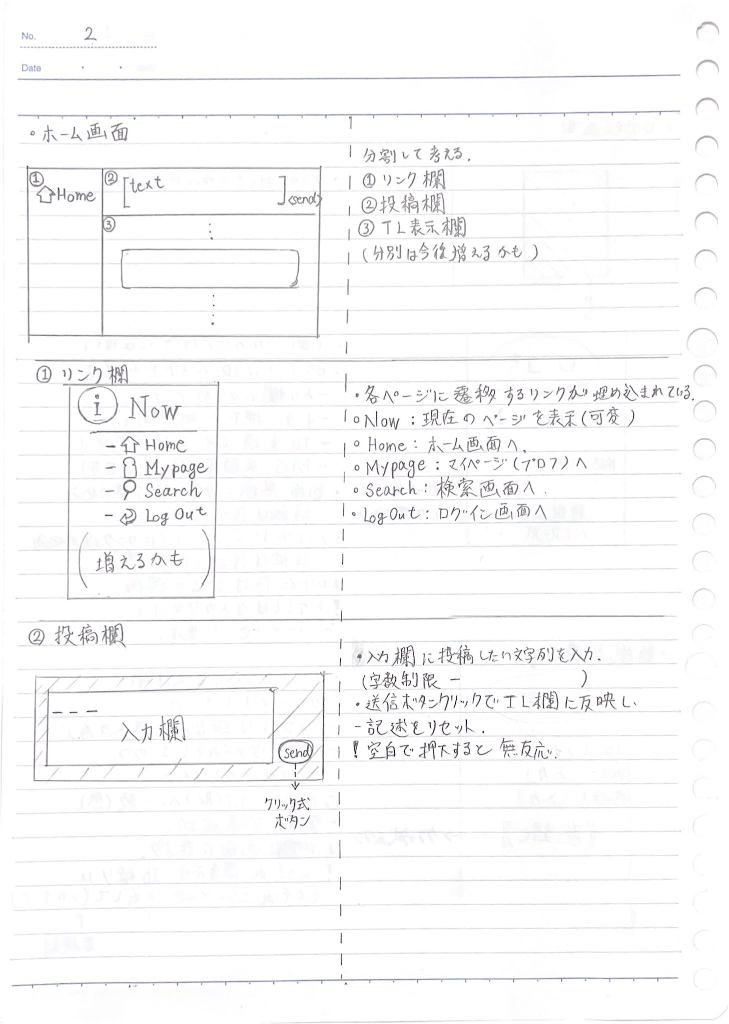 No. 2
Date ・ ・
・ホーム画面
① Home
② [text ] <send>
③
分割して考える.
① リンク欄
② 投稿欄
③ TL表示欄
(分別は今後増えるかも)
① リンク欄
i Now
- Home
- Mypage
- Search
- Log Out
(増えるかも)
・各ページに遷移するリンクが埋め込まれている.
○ Now : 現在のページを表示(可変)
○ Home : ホーム画面へ.
○ Mypage : マイページ(プロフ)へ
○ Search : 検索画面へ.
○ Log Out : ログイン画面へ
② 投稿欄
---
入力欄
send
クリック式
ボタン
・入力欄に投稿したい文字列を入力.
(字数制限 ー )
・送信ボタンクリックでTL欄に反映し
-記述をリセット.
! 空白で押下すると無反応.